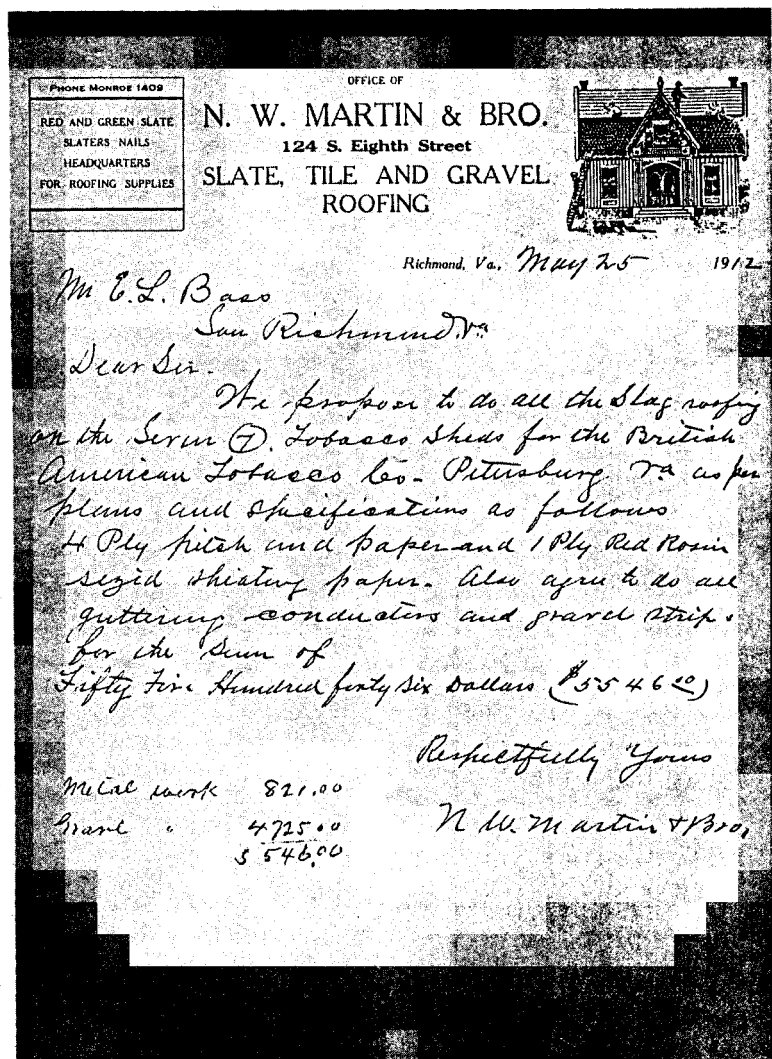 PHONE MONROE 1409
RED AND GREEN SLATE
SLATERS NAILS
HEADQUARTERS
FOR ROOFING SUPPLIES
OFFICE OF
N. W. MARTIN & BRO.
124 S. Eighth Street
SLATE, TILE AND GRAVEL
ROOFING
Richmond, Va., May 25 1912
Mr E. L. Bass
Sou Richmond. Va
Dear Sir.
We propose to do all the Slag roofing
on the Seven (7). Tobacco Sheds for the British
American Tobacco Co- Petersburg Va as per
plans and specifications as follows
4 Ply pitch and paper and 1 Ply Red Rosin
sized sheating paper. Also agree to do all
guttering conductors and gravel strips
for the Sum of
Fifty Five Hundred forty six Dollars ($5546.00)
Respectfully Yours
N. W. Martin & Bro,
Metal work 821.00
Gravel " 4725.00
$ 546.00